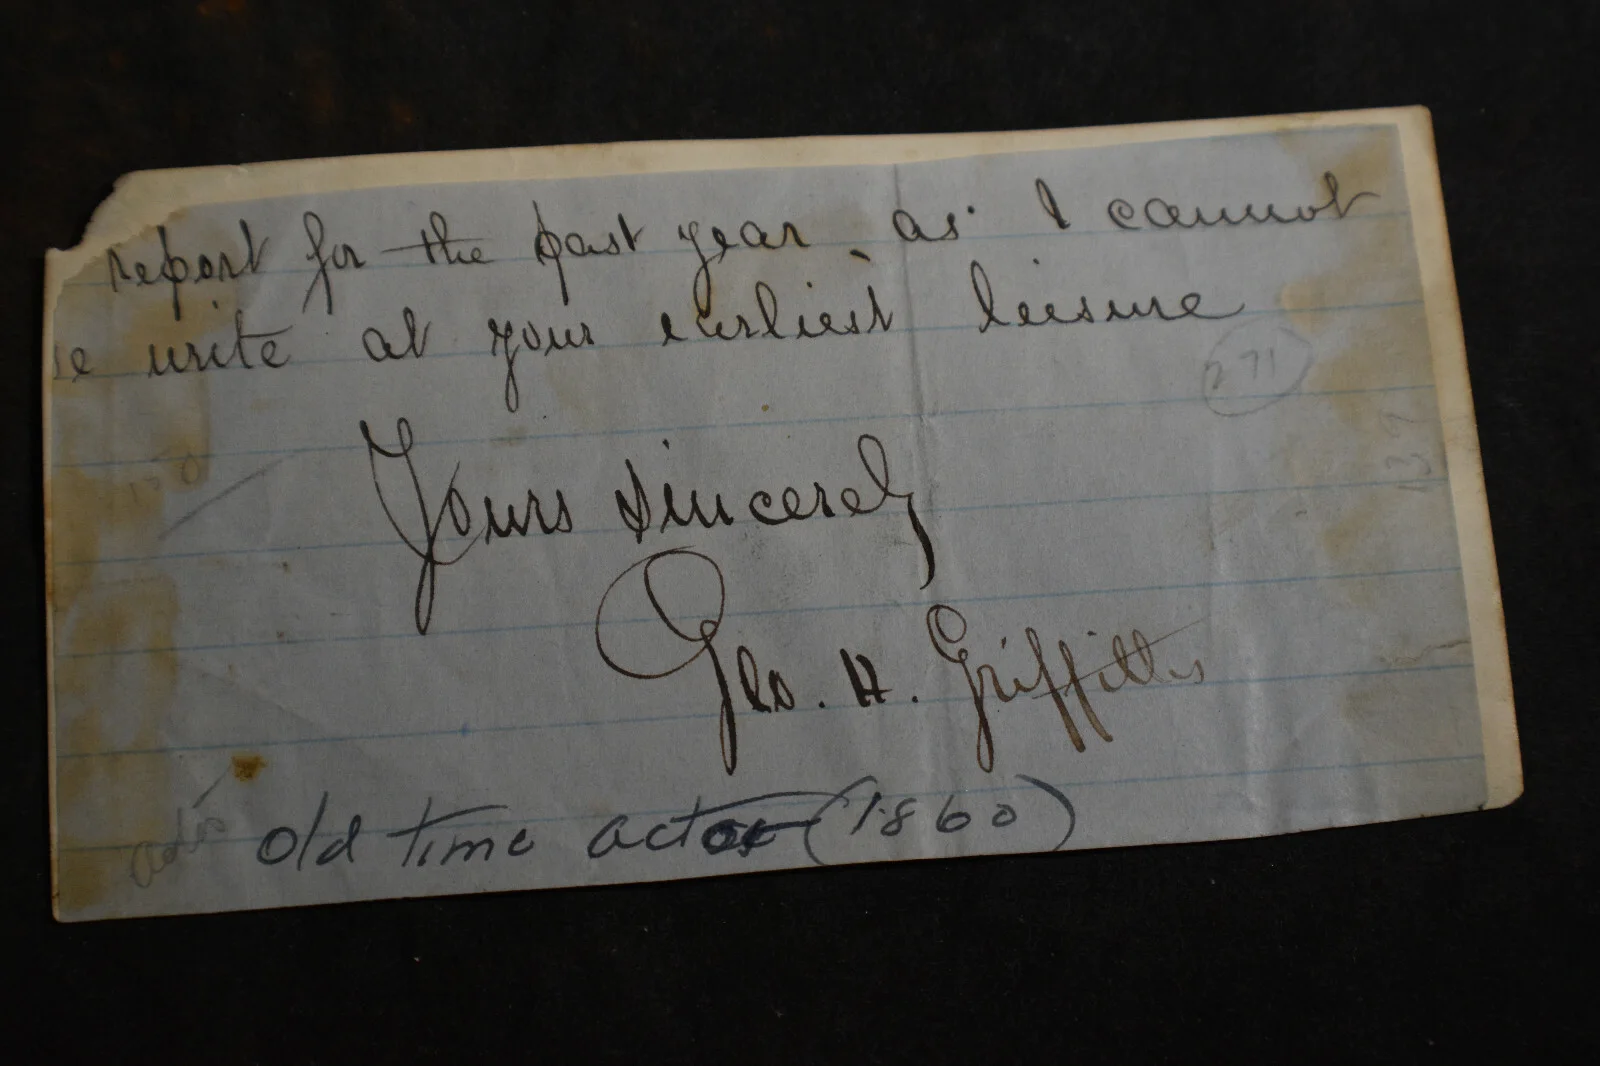 report for the past year, as I cannot
se write at your earliest leisure
271
150
137
Yours Sincerely
Geo. H. Griffiths
Old time actor (1860)